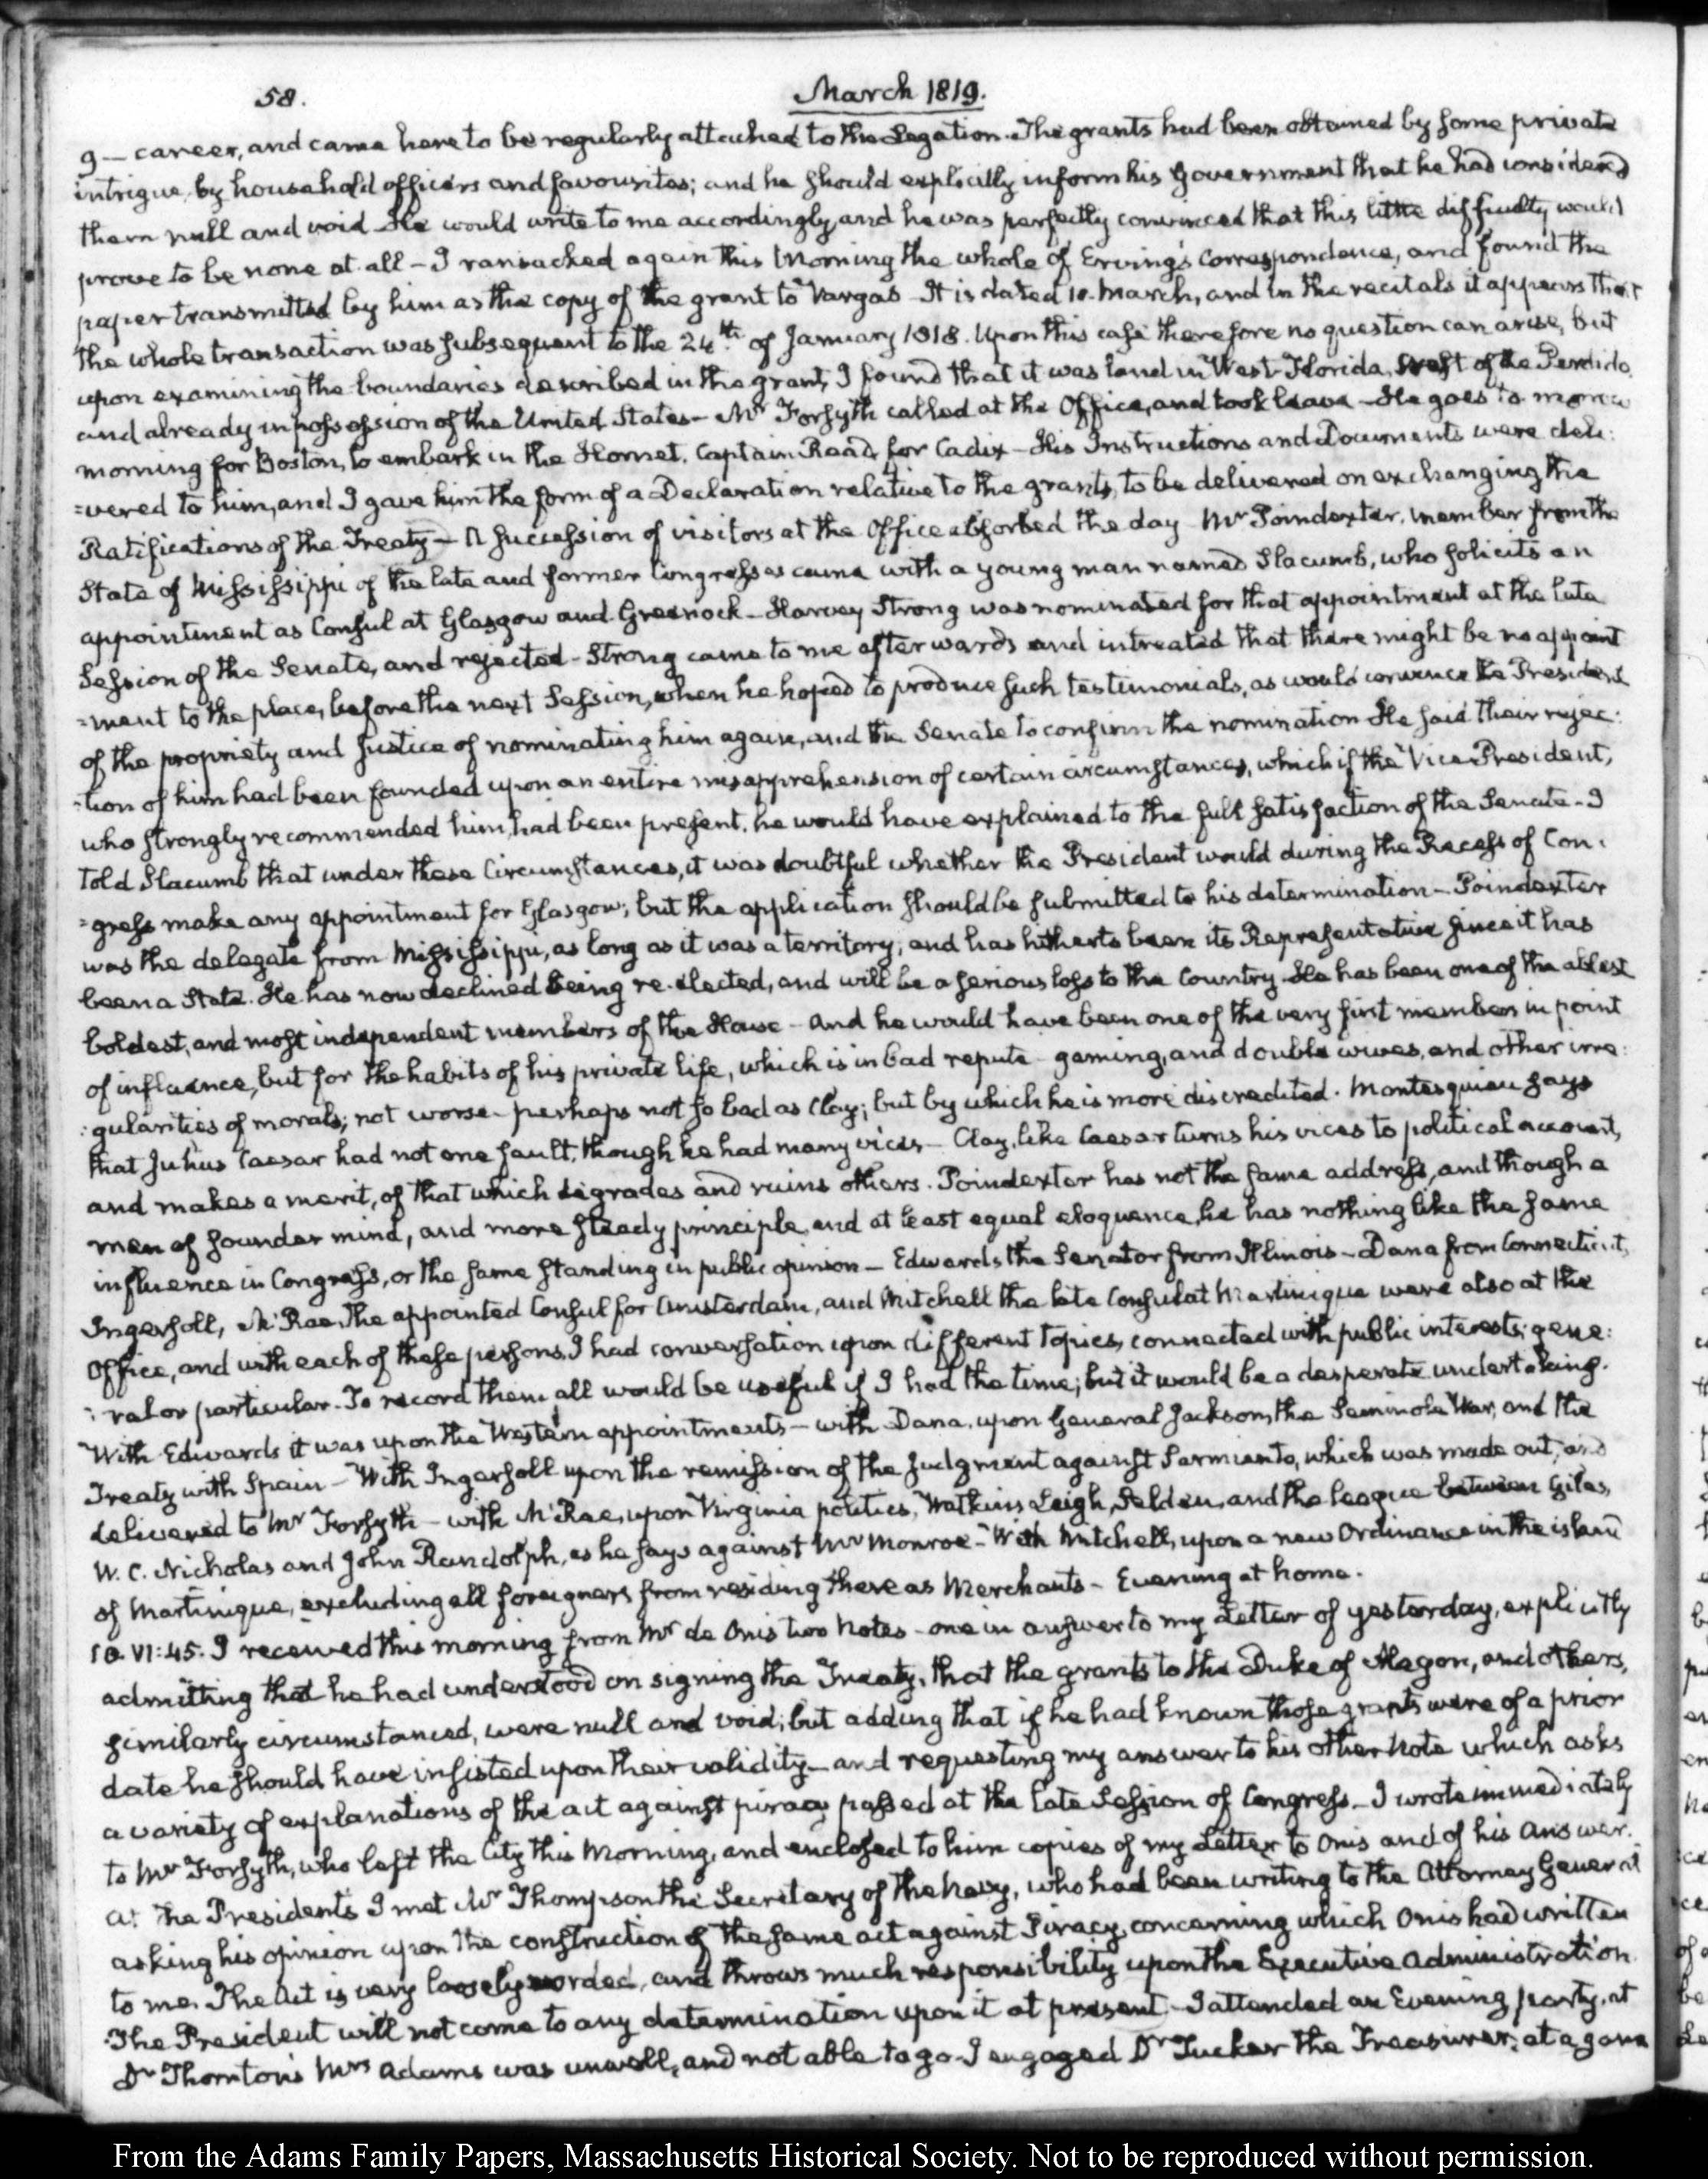 58. March 1819.
9 — career, and came here to be regularly attached to the Legation. The grants had been obtained by some private
intrigue, by household officers and favourites; and he should explicitly inform his Government that he had considered
them null and void. He would write to me accordingly and he was perfectly convinced that this little difficulty would
prove to be none at all — I ransacked again this Morning the whole of Erving's Correspondence, and found the
paper transmitted by him as the copy of the grant to Vargas. It is dated 10. March, and in the recitals it appears that
the whole transaction was subsequent to the 24th of January 1818. Upon this case therefore no question can arise, but
upon examining the boundaries described in the grant, I found that it was land in West-Florida, West of the Perdido,
and already in possession of the United States — Mr Forsyth called at the Office, and took leave — He goes to morrow
morning for Boston, to embark in the Hornet, Captain Read, for Cadix — His Instructions and Documents were deli:
:vered to him, and I gave him the form of a Declaration relative to the grants, to be delivered on exchanging the
Ratifications of the Treaty — A succession of visitors at the Office absorbed the day. Mr Poindexter, member from the
State of Mississippi of the late and former Congresses came with a young man named Slacumb, who solicits an
appointment as Consul at Glasgow and Greenock — Harvey Strong was nominated for that appointment at the late
Session of the Senate, and rejected — Strong came to me afterwards and intreated that there might be no appoint
:ment to the place, before the next Session, when he hoped to produce such testimonials, as would convince the President
of the propriety and Justice of nominating him again, and the Senate to confirm the nomination. He said their rejec:
:tion of him had been founded upon an entire misapprehension of certain circumstances, which if the Vice-President,
who strongly recommended him, had been present, he would have explained to the full satisfaction of the Senate — I
told Slacumb that under these Circumstances, it was doubtful whether the President would during the Recess of Con:
:gress make any appointment for Glasgow; but the application should be submitted to his determination — Poindexter
was the delegate from Mississippi, as long as it was a territory; and has hitherto been its Representative since it has
been a State. He has now declined being re-elected, and will be a serious loss to the Country. He has been one of the ablest
boldest, and most independent members of the House — and he would have been one of the very first members in point
of influence, but for the habits of his private life, which is in bad repute — gaming, and double wives, and other irre:
:gularities of morals; not worse — perhaps not so bad as Clay; but by which he is more discredited. Montesquieu says
that Julius Caesar had not one fault, though he had many vices — Clay, like Caesar turns his vices to political account,
and makes a merit, of that which degrades and ruins others. Poindexter has not the same address, and though a
man of sounder mind, and more steady principle, and at least equal eloquence, he has nothing like the same
influence in Congress, or the same standing in public opinion — Edwards, the Senator from Illinois — Dana from Connecticut,
Ingersoll, McRae, the appointed Consul for Amsterdam, and Mitchell the late Consul at Martinique were also at the
Office, and with each of these persons, I had conversation upon different topics, connected with public interests; gene:
:ral or particular. To record them all would be useful if I had the time; but it would be a desperate undertaking.
With Edwards it was upon the Western appointments — with Dana, upon General Jackson, the Seminole War, and the
Treaty with Spain — With Ingersoll upon the remission of the Judgment against Sarmiento, which was made out, and
delivered to Mr Forsyth — with McRae, upon Virginia politics, Watkins Leigh, Selden, and the league between Giles,
W. C. Nicholas and John Randolph, as he says against Mr Monroe — With Mitchell, upon a new Ordinance in the island
of Martinique, excluding all foreigners from residing there as Merchants — Evening at home.
10. VI:45. I received this morning from Mr de Onis two Notes — one in answer to my Letter of yesterday, explicitly
admitting that he had understood on signing the Treaty, that the grants to the Duke of Alagon, and others,
similarly circumstanced, were null and void; but adding that if he had known those grants were of a prior
date he should have insisted upon their validity — and requesting my answer to his other Note which asks
a variety of explanations of the act against piracy passed at the late Session of Congress — I wrote immediately
to Mr Forsyth, who left the City this Morning, and enclosed to him copies of my Letter to Onis and of his Answer.
At the Presidents I met Mr Thompson the Secretary of the Navy, who had been writing to the Attorney General
asking his opinion upon the construction of the same act against Piracy, concerning which Onis had written
to me. The Act is very loosely worded, and throws much responsibility upon the Executive Administration
The President will not come to any determination upon it at present — I attended an Evening party, at
Dr Thornton's Mrs Adams was unwell, and not able to go — I engaged Dr Tucker the Treasurer, at a game
From the Adams Family Papers, Massachusetts Historical Society. Not to be reproduced without permission.